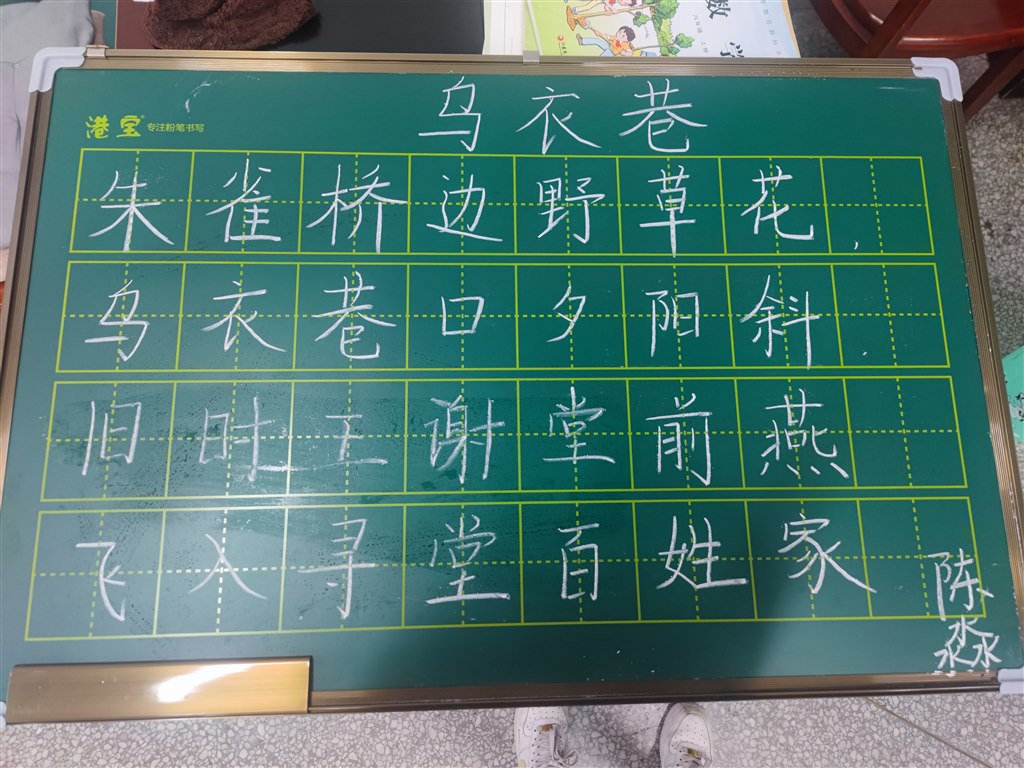 数学
六年级 上册
港宝® 专注粉笔书写
乌衣巷
朱雀桥边野草花,
乌衣巷口夕阳斜.
旧时王谢堂前燕
飞入寻堂百姓家
陈
淼